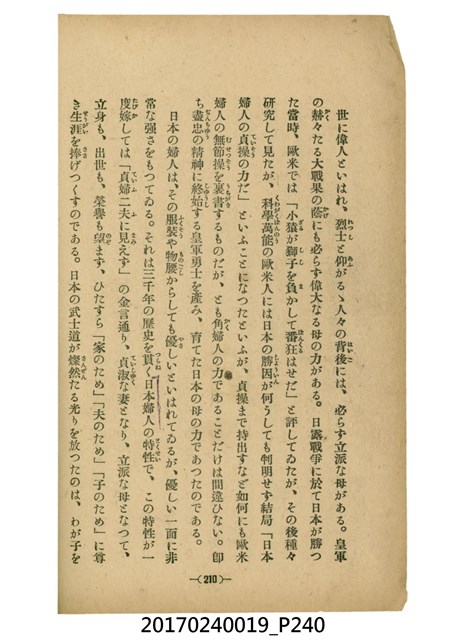 世に偉人といはれ、烈士と仰がるゝ人々の背後には、必らず立派な母がある。皇軍
の赫々たる大戰果の蔭にも必らず偉大なる母の力がある。日露戰爭に於て日本が勝つ
た當時、歐米では「小猿が獅子を負かして番狂はせだ」と評してゐたが、その後種々
研究して見たが、科學萬能の歐米人には日本の勝因が何うしても判明せず結局「日本
婦人の貞操の力だ」といふことになつたといふが、貞操まで持出すなど如何にも歐米
婦人の無節操を裏書するものだが、とも角婦人の力であることだけは間違ひない。卽
ち盡忠の精神に終始する皇軍勇士を產み、育てた日本の母の力であつたのである。
日本の婦人は、その服裝や物腰からしても優しいといはれてゐるが、優しい一面に非
常な强さをもつてゐる。それは三千年の歷史を貫く日本婦人の特性で、この特性が一
度嫁しては「貞婦二夫に見えず」の金言通り、貞淑な妻となり、立派な母となつて、
立身も、出世も、榮譽も望まず、ひたすら「家のため」「夫のため」「子のため」に尊
き生涯を捧げつくすのである。日本の武士道が燦然たる光りを放つたのは、わが子を
—( 210 )—
20170240019_P240